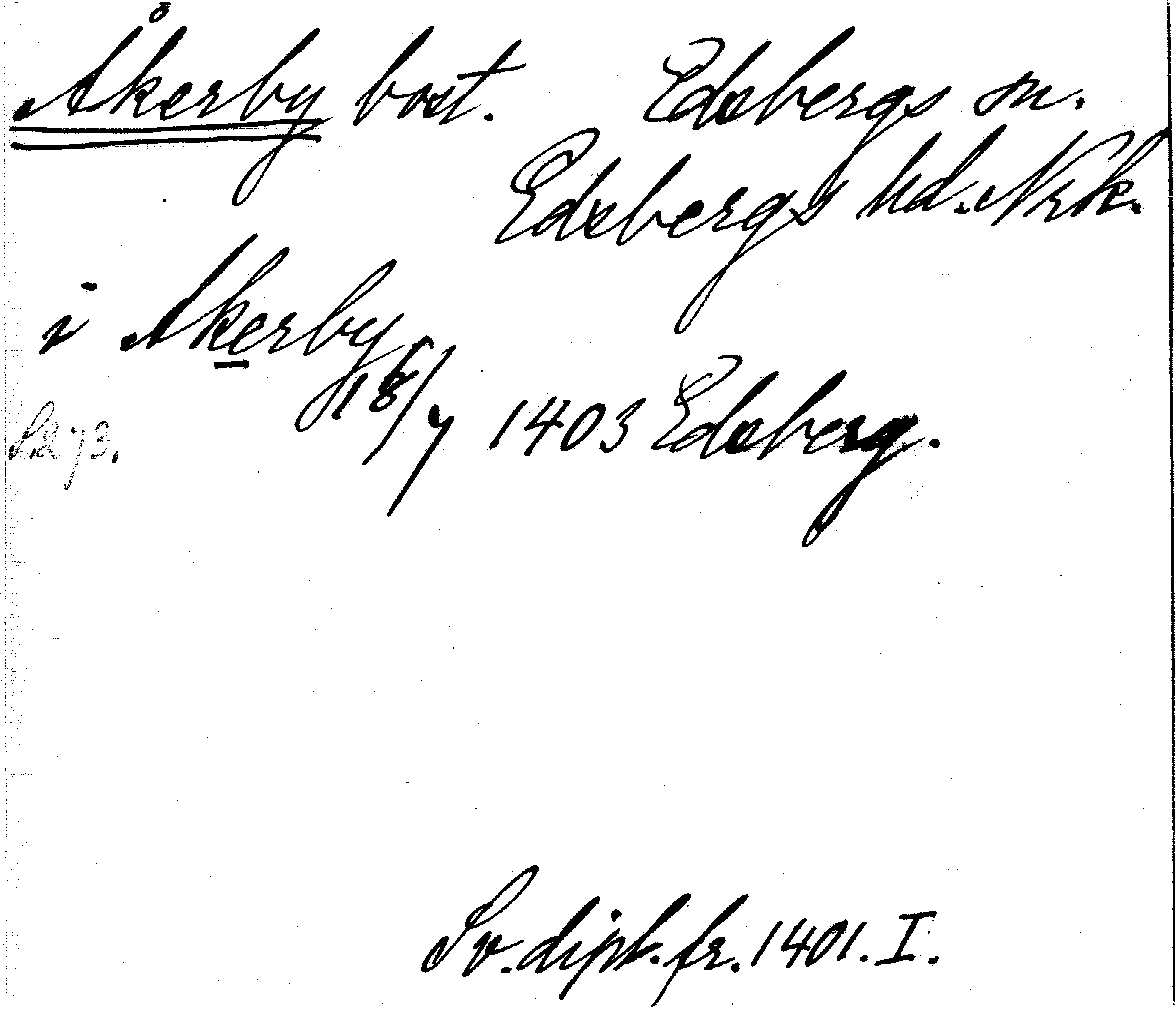 Åkerby bost. Edsbergs sn.
Edsbergs hd. Nrk.
i Akerby
16/7 1403 Edsberg.
S. 273.
Sv. dipl. fr. 1401. I.